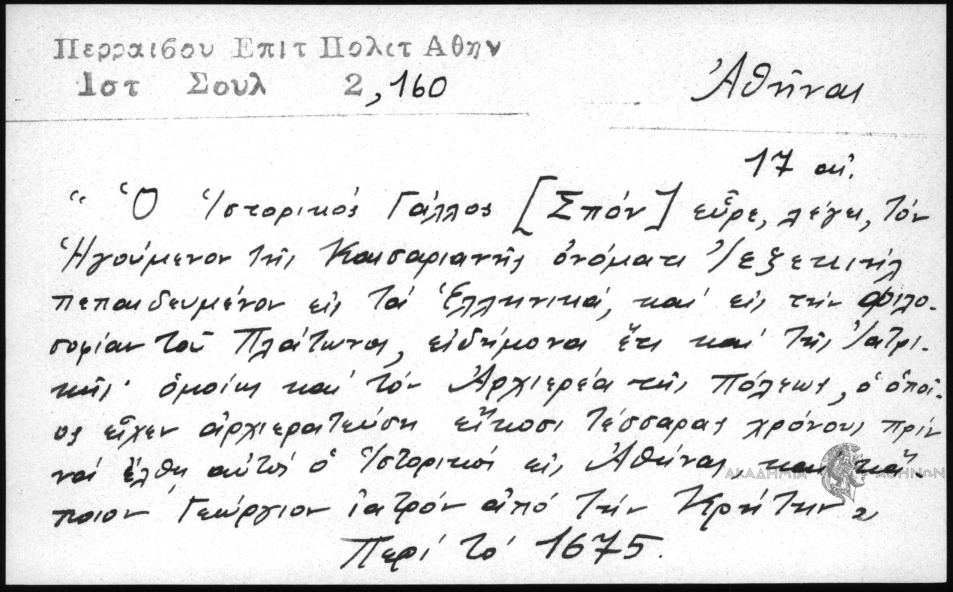 Περραιβου Επιτ Πολιτ Αθην
Ιστ Σουλ 2, 160
Ἀθῆναι
17 αἰ.
“ Ὁ Ἱστορικός Γάλλος [Σπόν] εὗρε, λέγει, τόν
Ἡγούμενον τῆς Καισαριανῆς ὀνόματι Ἰεζεκιήλ
πεπαιδευμένον εἰς τά Ἑλληνικά, καί εἰς τήν Φιλο-
σοφίαν τοῦ Πλάτωνος, εἰδήμονα ἔτι καί τῆς Ἰατρι-
κῆς· ὁμοίως καί τόν Ἀρχιερέα τῆς πόλεως, ὁ ὁποῖ-
ος εἶχεν ἀρχιερατεύση εἴκοσι τέσσαρας χρόνους πρίν
νά ἔλθῃ αὐτός ὁ Ἱστορικός εἰς Ἀθήνας καί κά-
ποιον Γεώργιον ἰατρόν ἀπό τήν Κρήτην„
Περί τό 1675.
ΑΚΑΔΗΜΙΑ ΑΘΗΝΩΝ